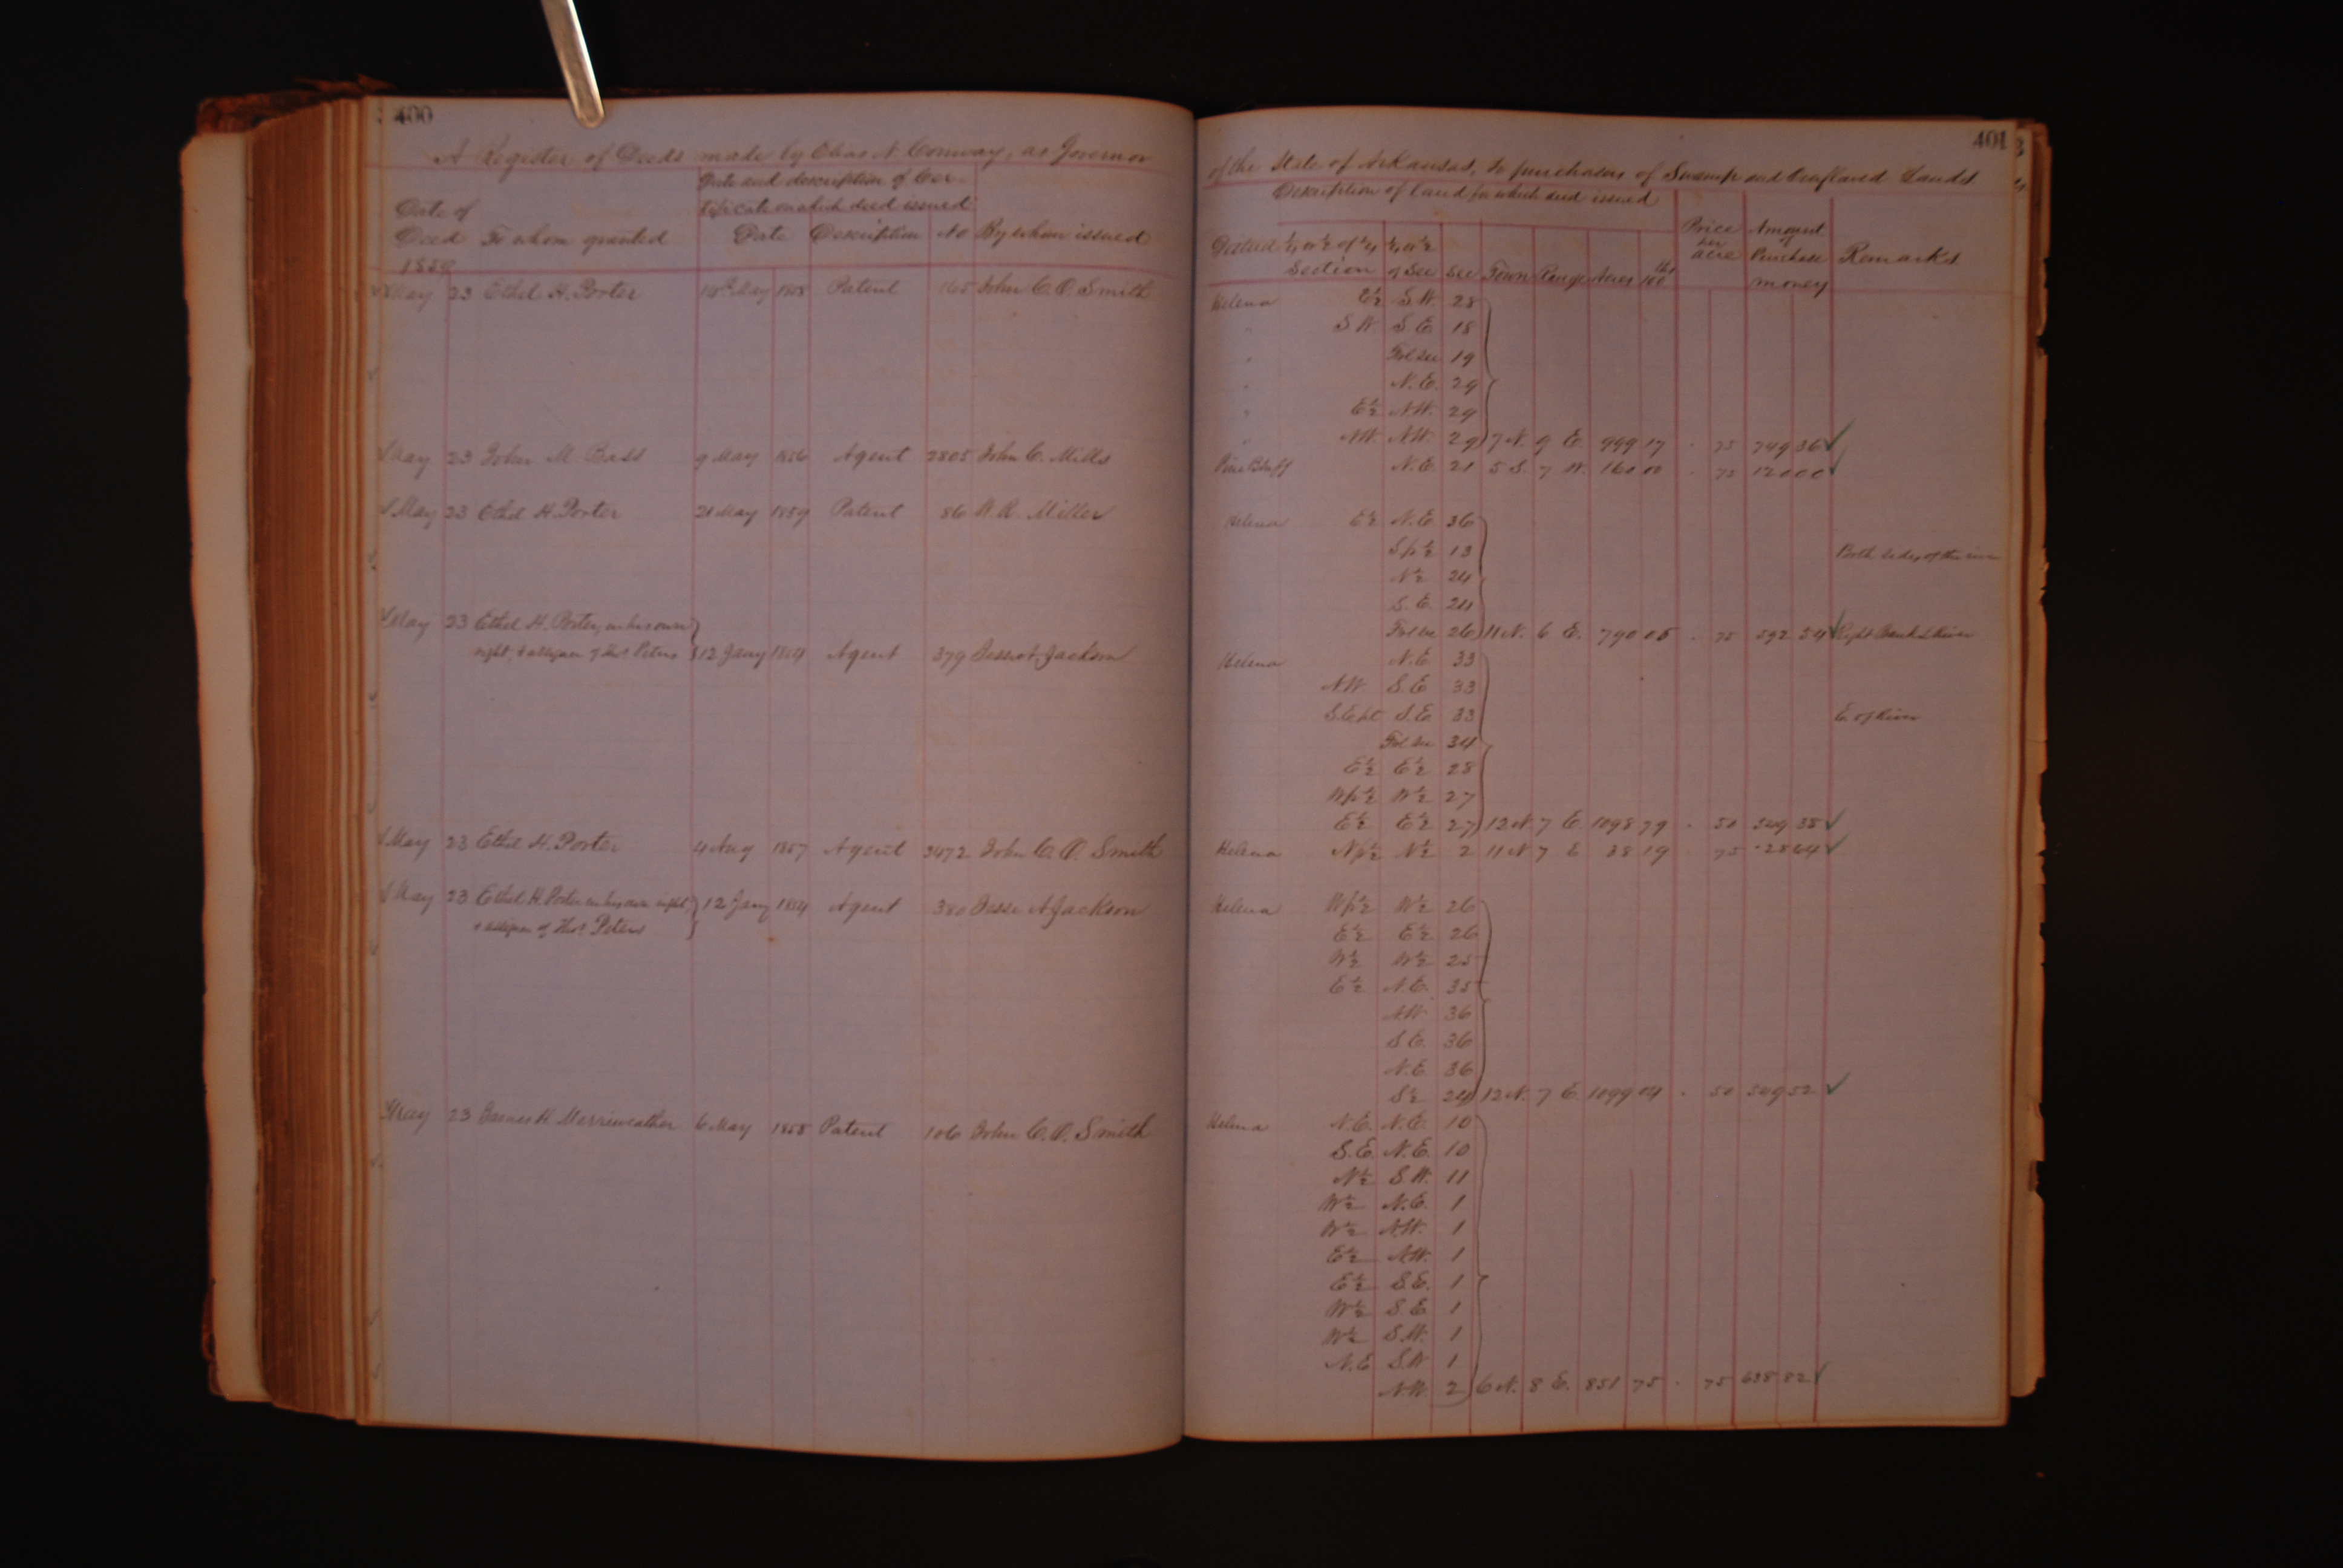 400
A Register of Deeds made by Elias N. Conway, as Governor
Date and description of Cer-
tificate on which deed issued
Date of
Deed To whom granted Date Description No By whom issued
1859
May 23 Ethel H. Porter 18th May 1858 Patent 165 John C. O. Smith
May 23 John M. Bass 9 May 1856 Agent 2805 John C. Mills
May 23 Ethel H. Porter 21 May 1859 Patent 86 W. R. Miller
May 23 Ethel H. Porter, in his own
right, & assignee of Thos Peters 12 Jany 1854 Agent 379 Jesse A. Jackson
May 23 Ethel H. Porter 4 Aug 1857 Agent 3472 John C. O. Smith
May 23 Ethel H. Porter in his own right,
& assignee of Thos Peters 12 Jany 1854 Agent 380 Jesse A Jackson
May 23 James H. Merriweather 6 May 1858 Patent 106 John C. O. Smith
401
of the State of Arkansas, to purchasers of Swamp and Overflowed Lands
Description of land for which deed issued
District ¼ or ½ of ¼ ¼ or ½ Price Amount
Section of Sec Sec Town Range Acres 100ths per acre of Purchase money Remarks
Helena E½ S.W. 28
" S.W S.E. 18
" Frl sec 19
" N.E. 29
" E½ N.W. 29
" NW. NW. 29 7 N. 9 E. 999 17 . 75 749 36
Pine Bluff N.E. 21 5 S. 7 W. 160 00 . 75 120 00
Helena E½ N.E 36
Sp½ 13 Both sides of the river
N½ 24
S.E. 24
Frl sec 26 11 N. 6 E. 790 05 . 75 592 54 Right Bank L River
Helena N.E 33
N.W. S.E 33
S.E pt S.E 33 E. of River
Frl sec 34
E½ E½ 28
Wp½ W½ 27
E½ E½ 27 12 N. 7 E. 1098 79 . 50 549 38
Helena Np½ N½ 2 11 N 7 E 38 19 . 75 28 64
Helena Wp½ W½ 26
E½ E½ 26
W½ W½ 25
E½ N.E. 35
N.W 36
S.E. 36
N.E 36
S½ 24 12 N. 7 E. 1099 04 . 50 549 52
Helena N.E. N.E. 10
S.E. N.E. 10
N½ S.W. 11
W½ N.E. 1
W½ N.W. 1
E½ N.W. 1
E½ S.E. 1
W½ S.E 1
W½ S.W. 1
N.E S.W 1
N.W. 2 6 N. 8 E. 851 75 . 75 638 82